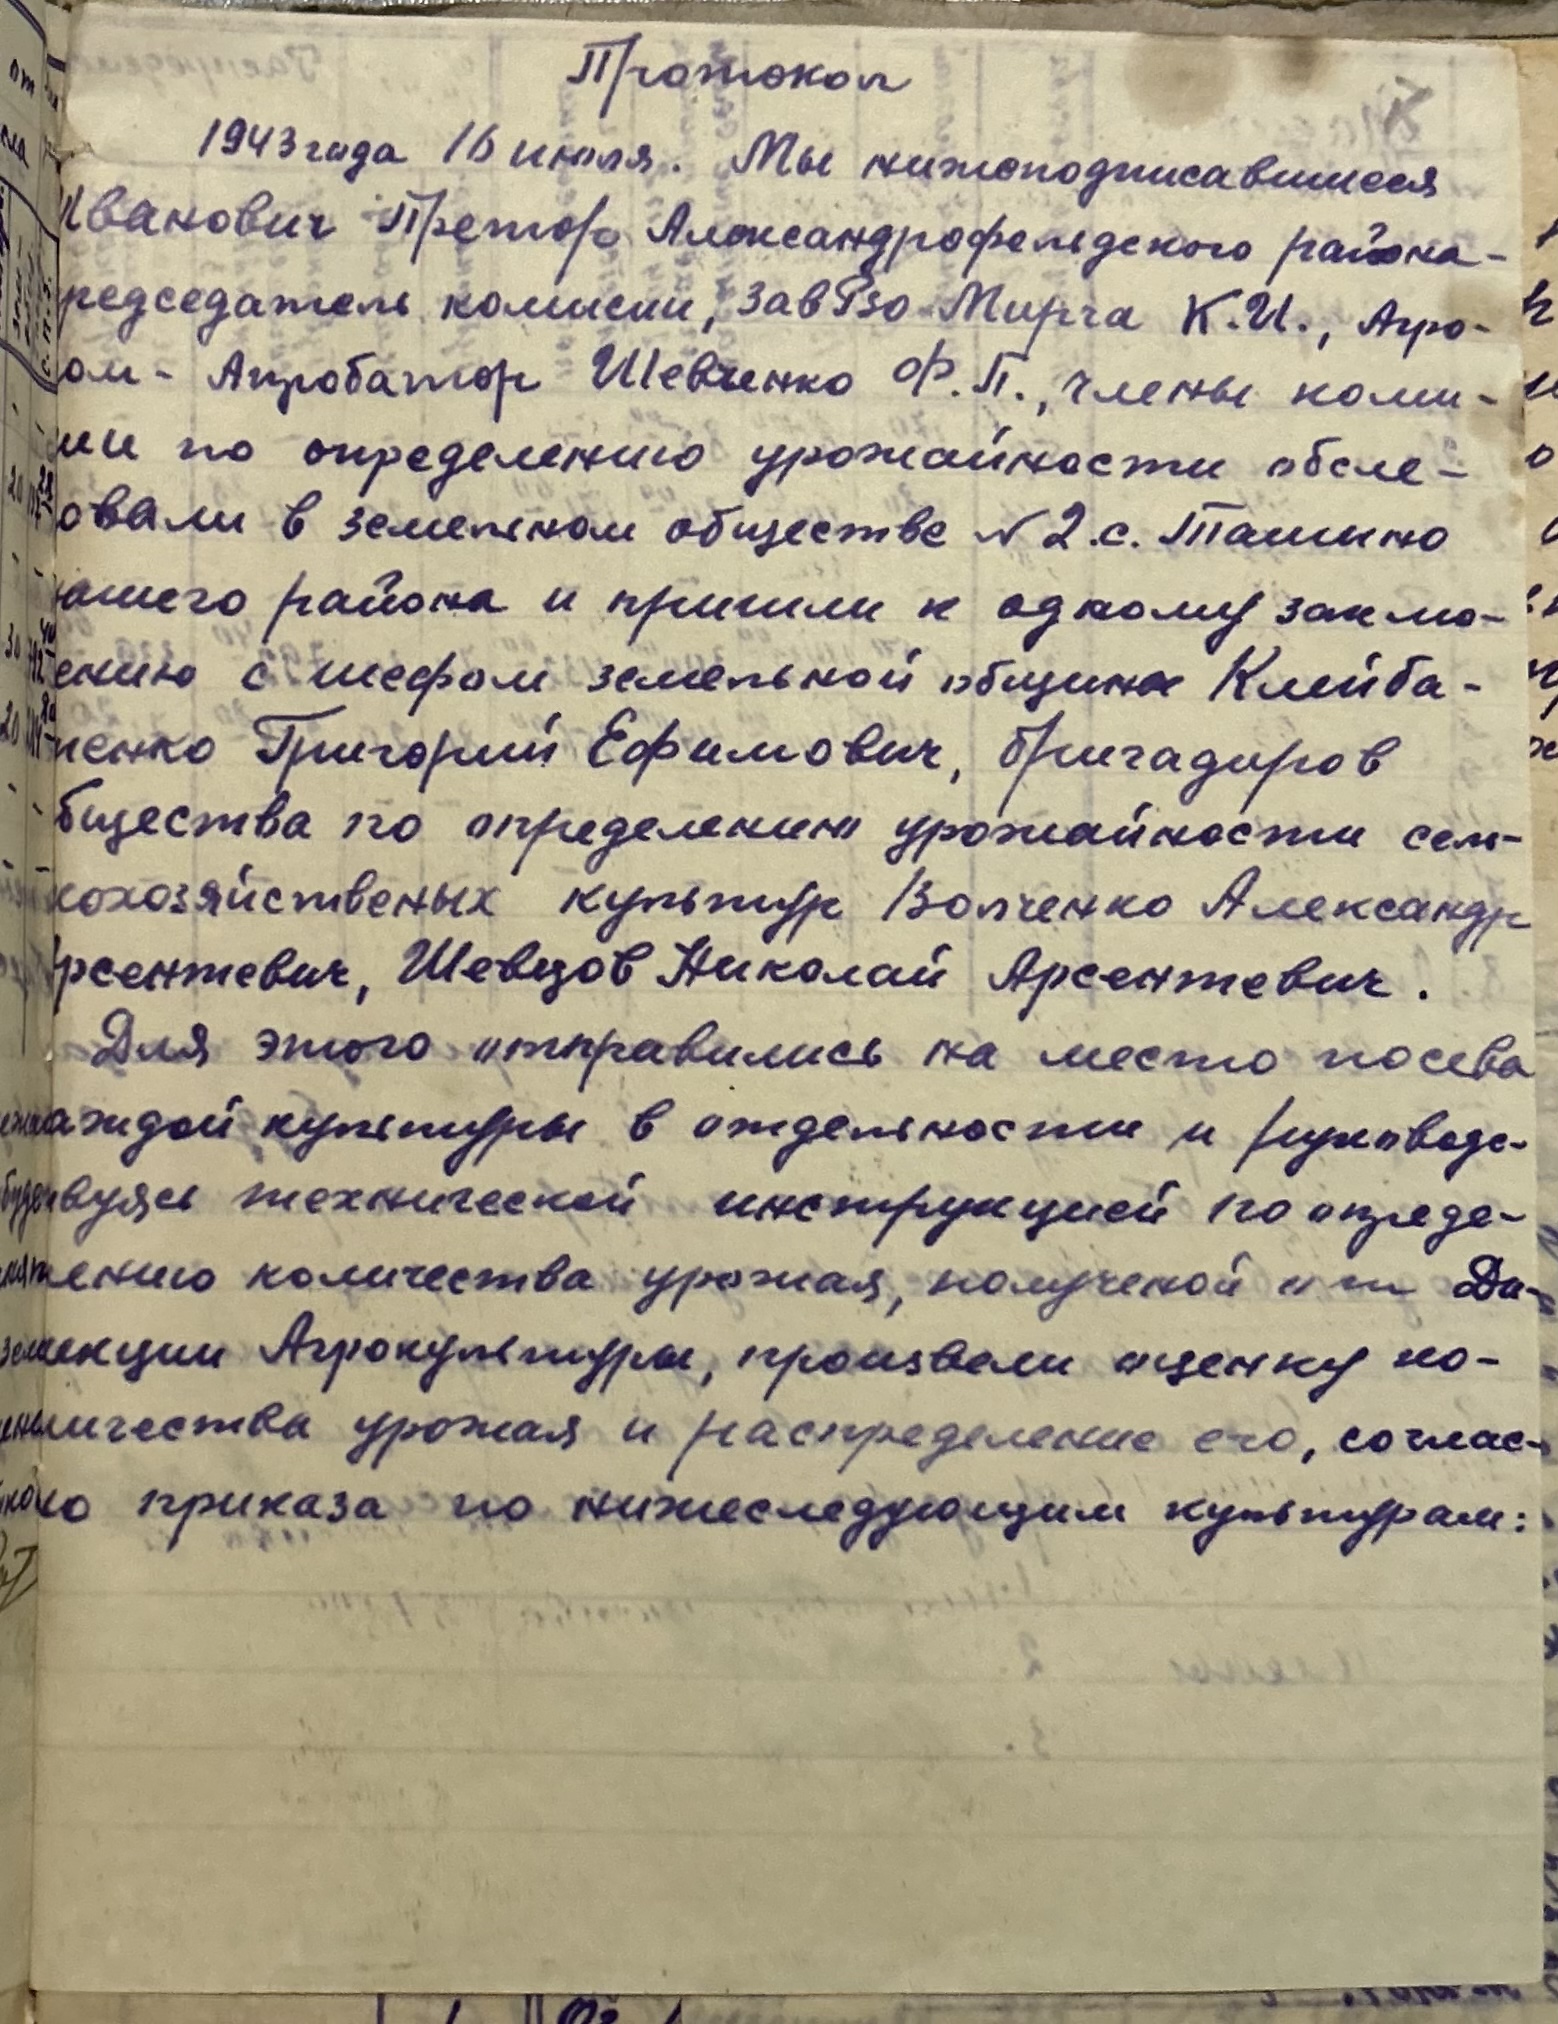 Протокол
1943 года 16 июля. Мы нижеподписавшиеся
Иванович Претор Александрофельдского района-
редседатель комисии, ЗавРзо Мирга К.И., Агро-
ом - Апробатор Шевченко Ф.П., члены коми-
ии по определению урожайности обсле-
овали в земельном обществе №2.с. Ташино
ашего района и пришли к одному заклю-
ению с шефом земельной общины Клейба-
ненко Григорий Ефимович, бригадиров
бщества по определению урожайности сель-
кохозяйственых культур Волченко Александр
рсентевич, Шевцов Николай Арсентевич.
Для этого отправились на место посева
аждой культуры в отдельности и руководс-
вуясь технической инструкцией по опреде-
ению количества урожая, полученой от Ди-
екции Агрокультуры, произвели оценку ко-
личества урожая и распределение его, соглас-
но приказа по нижеследующим культурам: